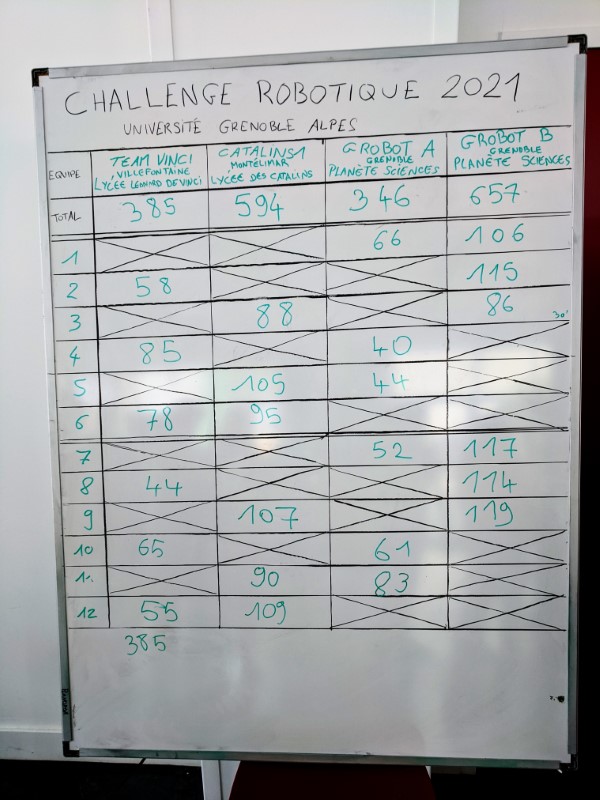 CHALLENGE ROBOTIQUE 2021
UNIVERSITÉ GRENOBLE ALPES
EQUIPE TEAM VINCI VILLEFONTAINE LYCÉE LÉONARD DE VINCI CATALINS 1 MONTÉLIMAR LYCÉE DES CATALINS GROBOT A GRENOBLE PLANÈTE SCIENCES GROBOT B GRENOBLE PLANÈTE SCIENCES
TOTAL 385 594 346 657
1 66 106
2 58 115
3 88 86 30'
4 85 40
5 105 44
6 78 95
7 52 117
8 44 114
9 107 119
10 65 61
11. 90 83
12 55 109
385